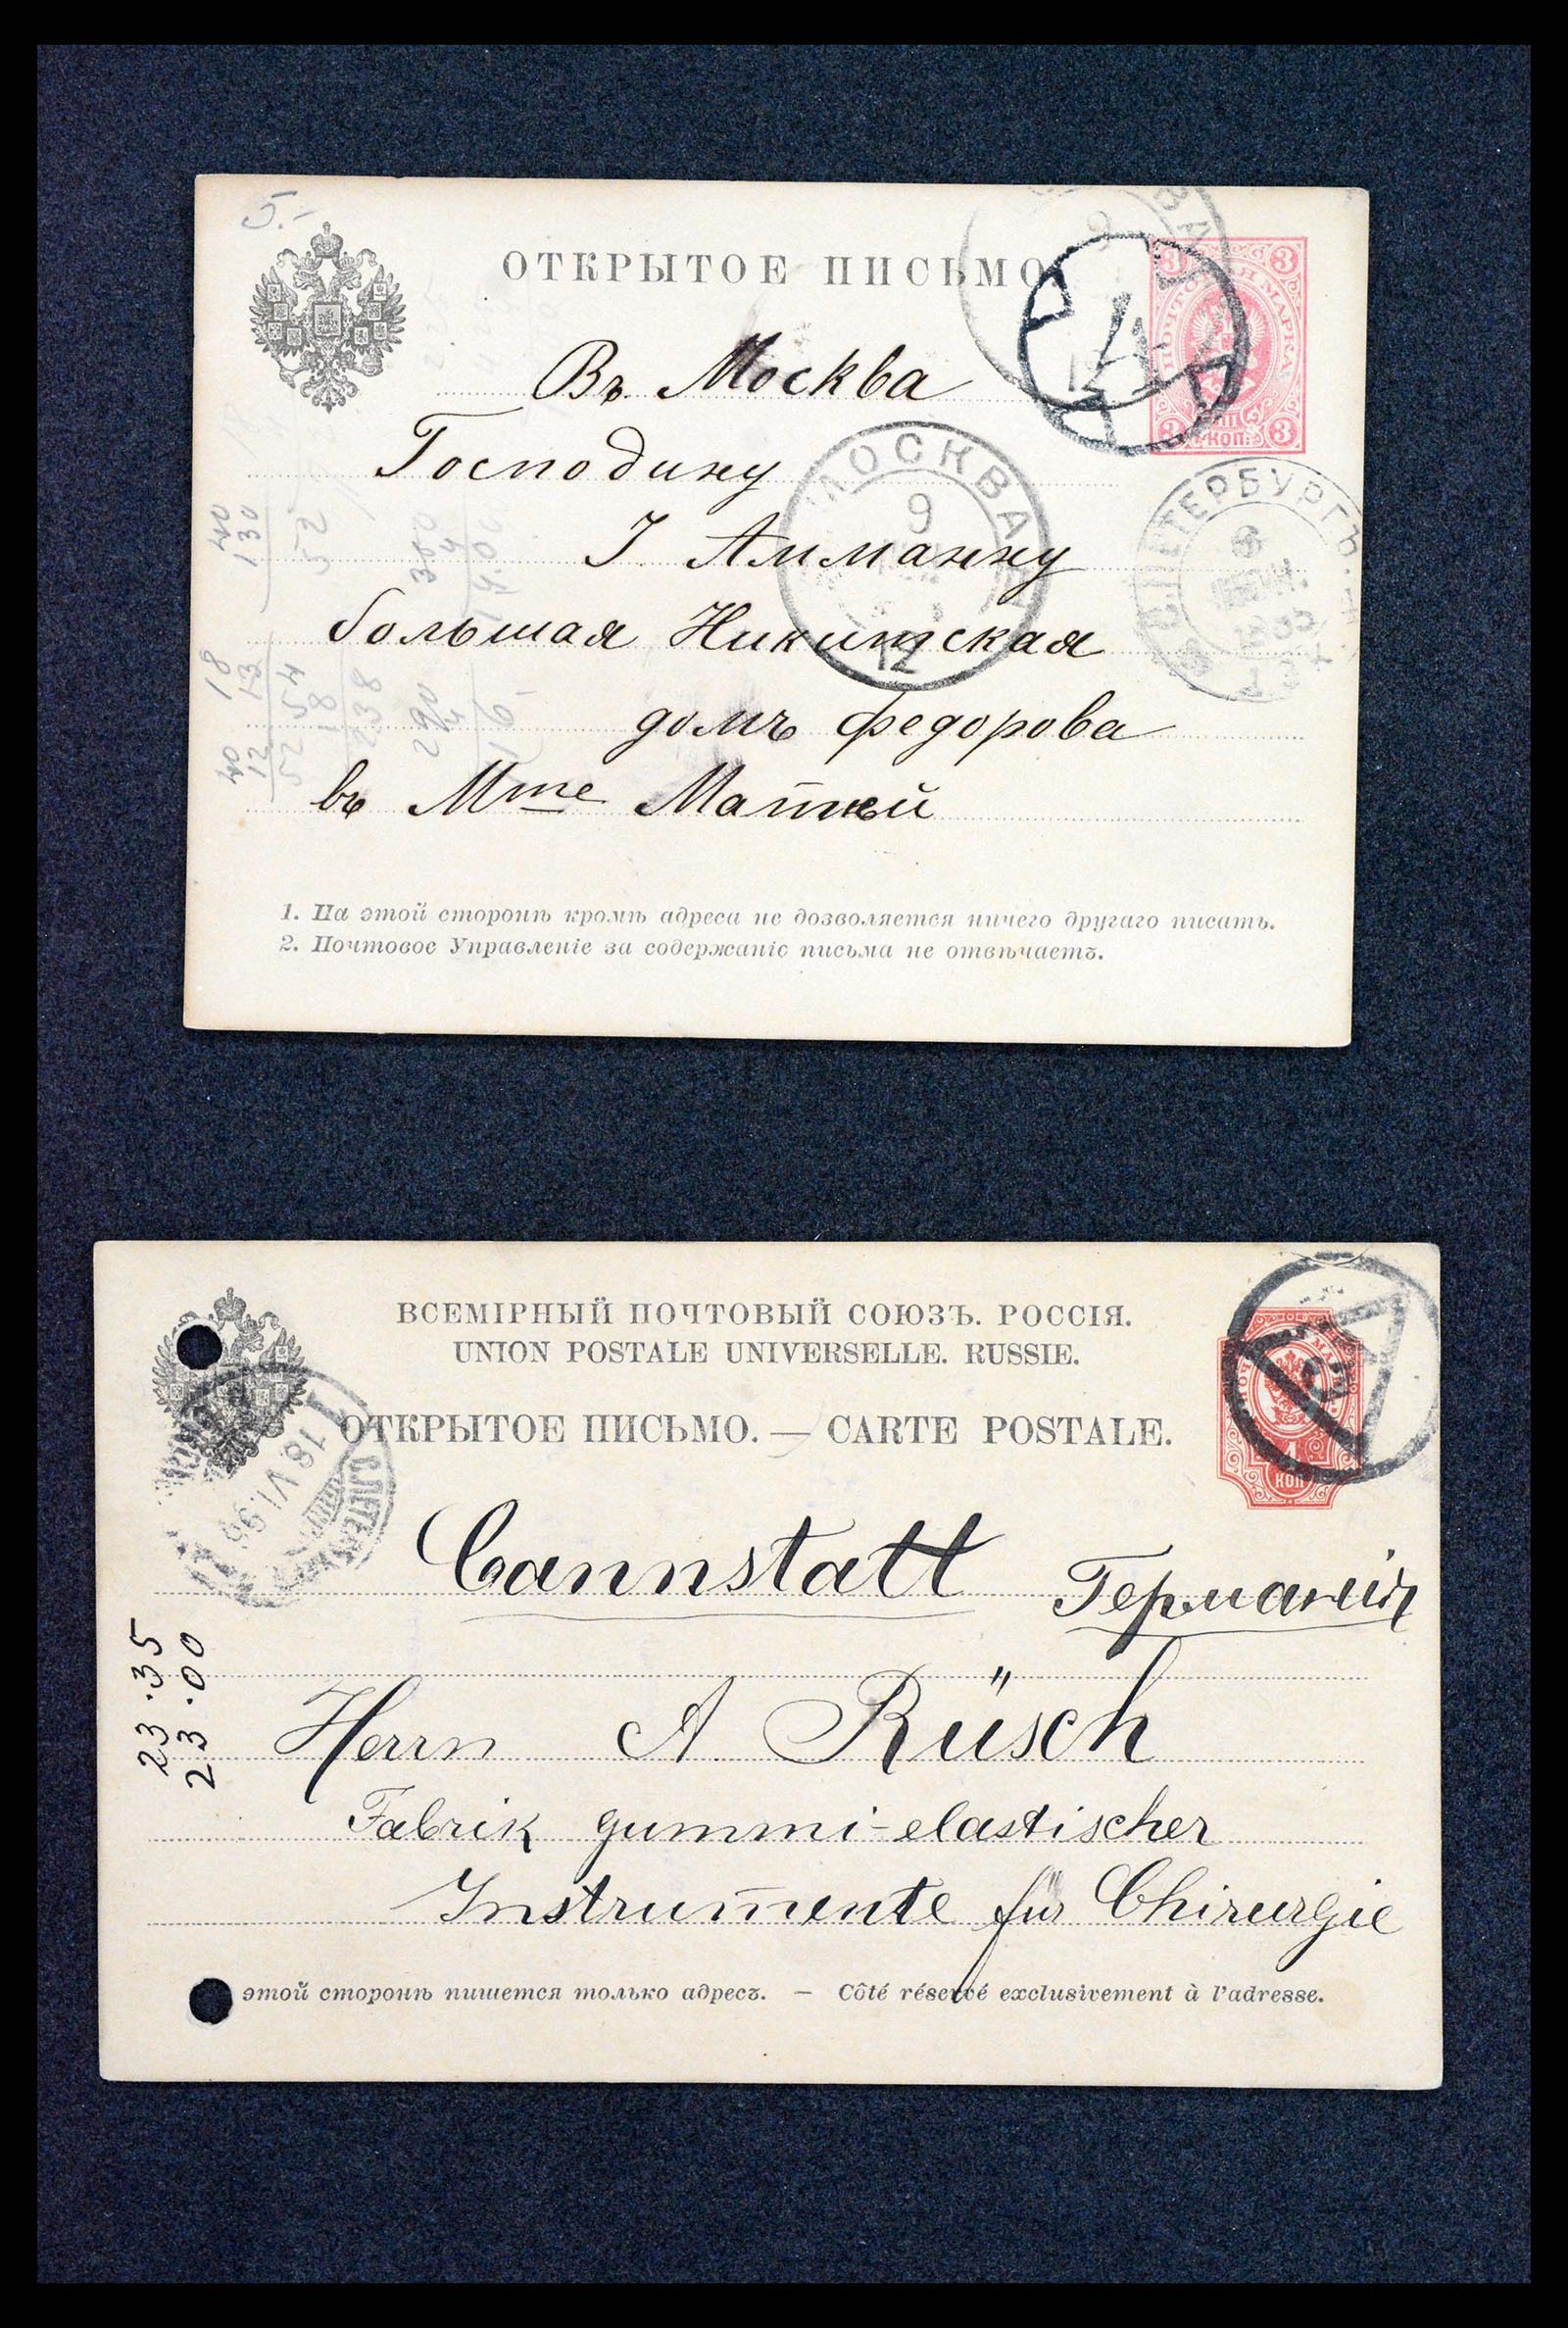 5.-
ОТКРЫТОЕ ПИСЬМО.
3 3
ПОЧТОВАЯ МАРКА
3 КОП. 3
Въ Москва
Господину
І. Амманну
большая Никитская
домъ Федорова
въ Mme
МОСКВА
9
12
С.ПЕТЕРБУРГЪ
8
40
130
52
18
13
54
18
40
12
52
38
290
1. На этой сторонѣ кромѣ адреса не дозволяется ничего другаго писать.
2. Почтовое Управленіе за содержаніе письма не отвѣчаетъ.
ВСЕМІРНЫЙ ПОЧТОВЫЙ СОЮЗЪ. РОССІЯ.
UNION POSTALE UNIVERSELLE. RUSSIE.
ОТКРЫТОЕ ПИСЬМО. — CARTE POSTALE.
4
КОП
18 VI.96
Cannstatt Германія
Herrn A Rüsch
Fabrik gummi-elastischer
Instrumente für Chirurgie
23.35
23.00
этой сторонѣ пишется только адресъ. — Côté réservé exclusivement à l'adresse.